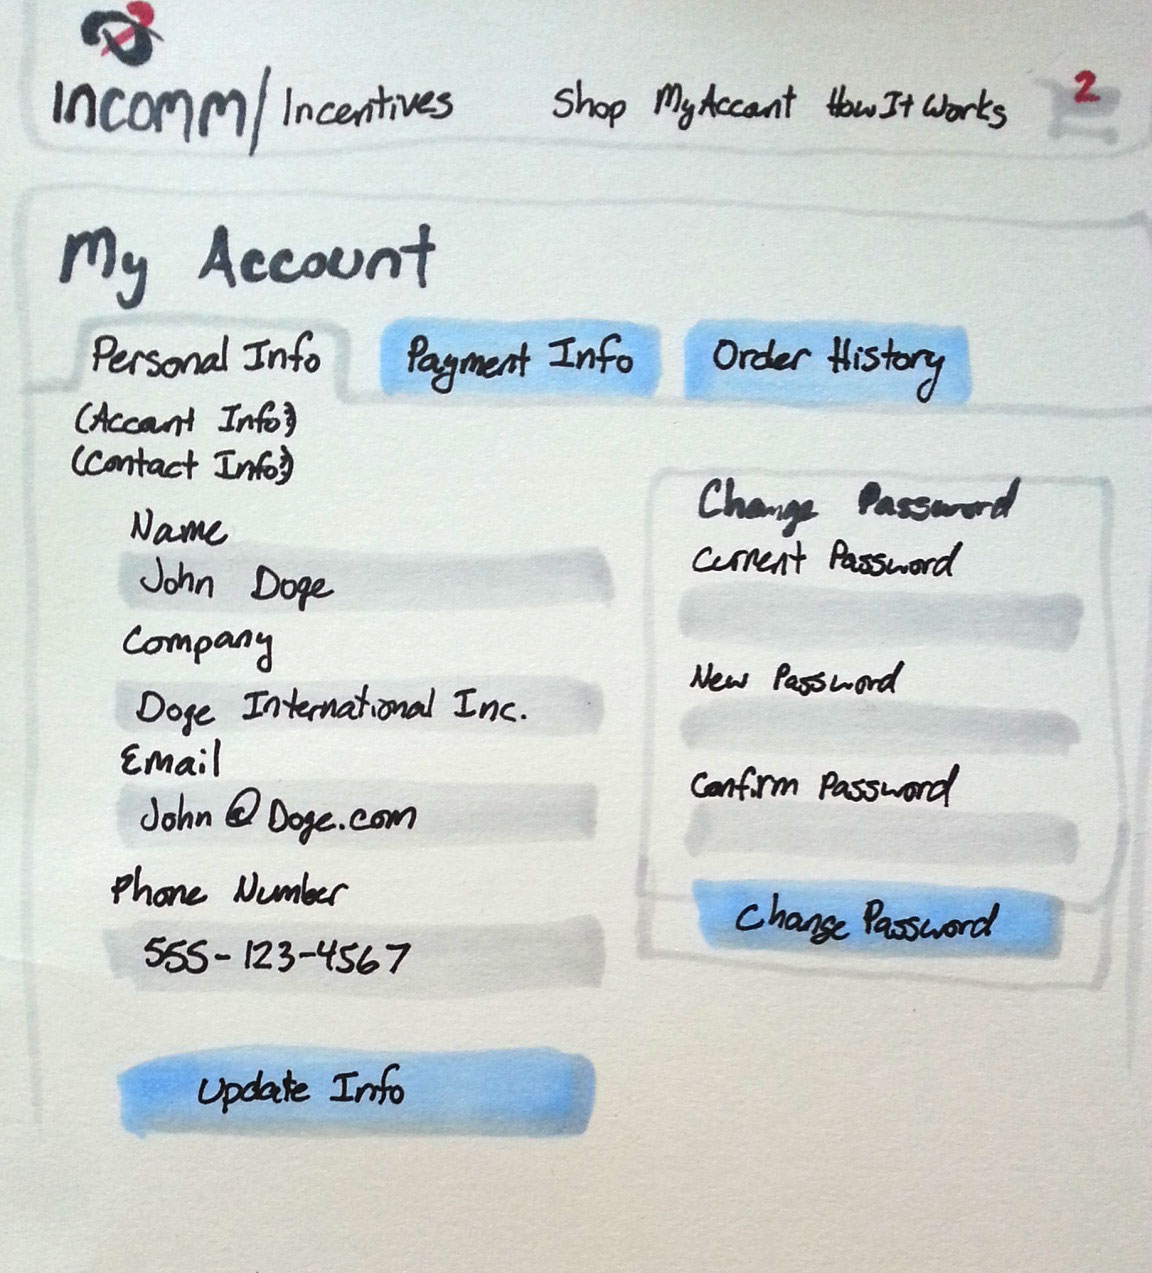 Incomm/Incentives Shop My Account How It Works 2
My Account
Personal Info Payment Info Order History
(Account Info?)
(Contact Info?)
Name
John Doge
Company
Doge International Inc.
Email
John@Doge.com
Phone Number
555-123-4567
Update Info
Change Password
Current Password
New Password
Confirm Password
Change Password